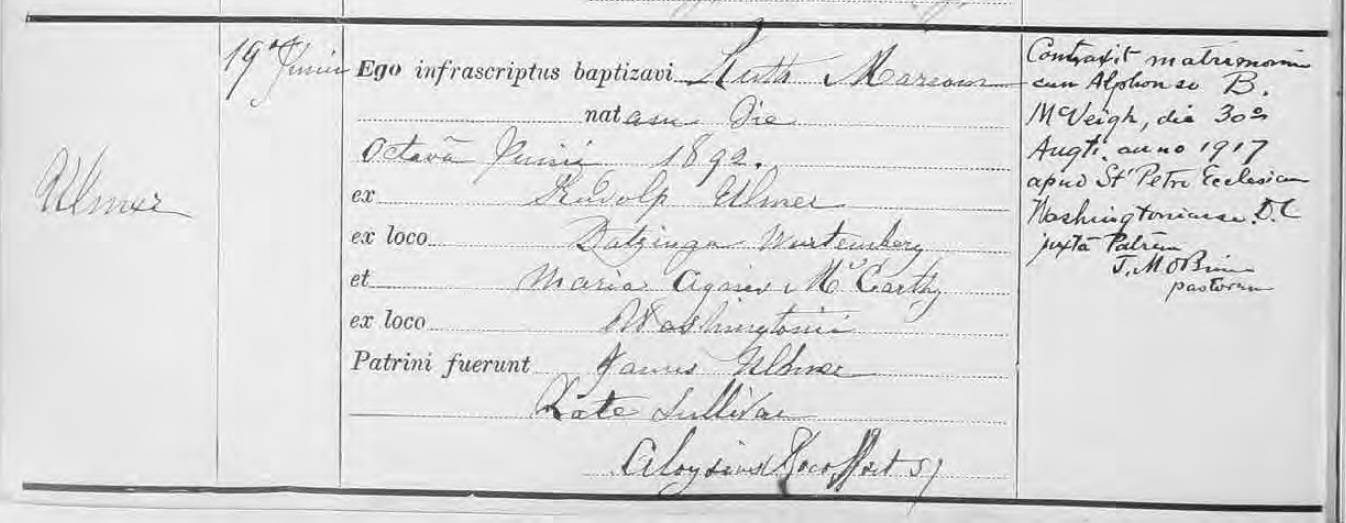 Ulmer
19ª Junii
Ego infrascriptus baptizavi Ruth Marion
natam die
Octavâ Junii 1892.
ex Rudolp Ulmer
ex loco Wurtemberg
et Maria Agnes McCarthy
ex loco Washingtonii
Patrini fuerunt James Ulmer
Kate Sullivan
Aloysius SJ
Contraxit matrimonium
cum Alphonso B.
McVeigh, die 30ª
Augti. anno 1917
apud St Petri Ecclesiam
Washingtoniense. D.C
juxtâ Patrem
J. M OBrien
pastorem